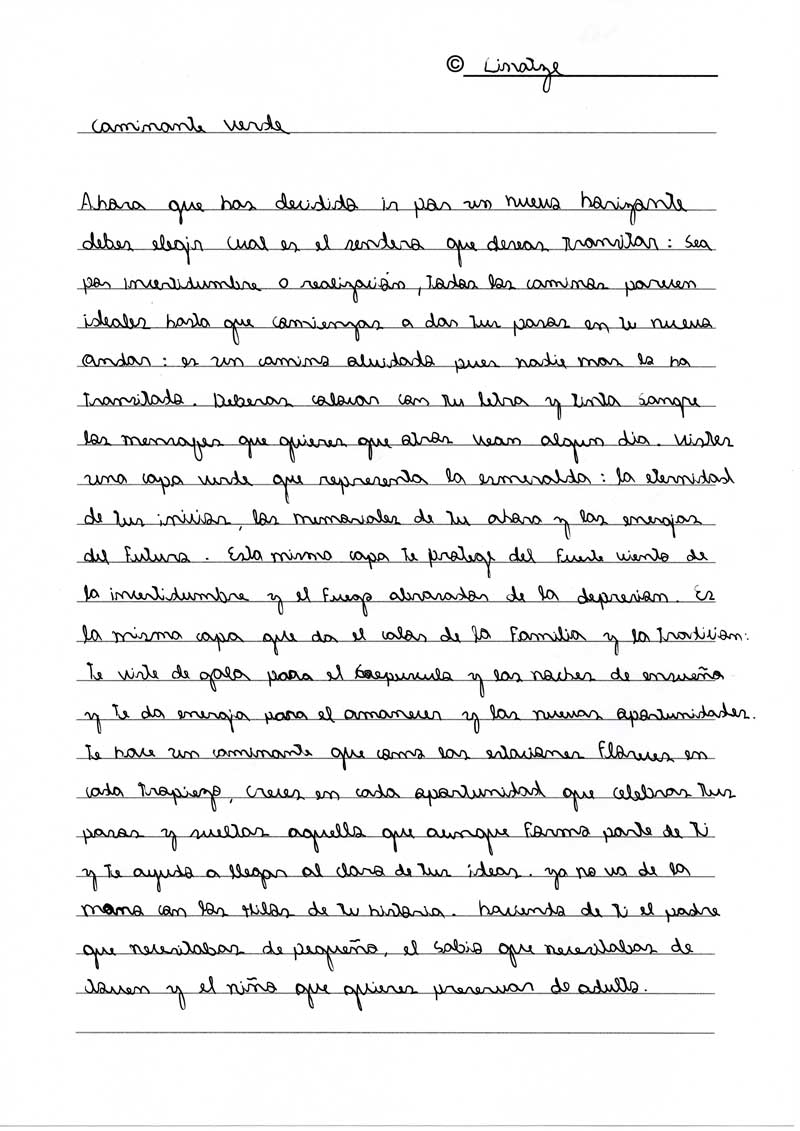 © Linatze
caminante verde
Ahora que has decidido ir por un nuevo horizonte
debes elegir cual es el sendero que deseas transitar: sea
por incertidumbre o realización, todos los caminos parecen
ideales hasta que comienzas a dar tus pasos en tu nuevo
andar: es un camino olvidado pues nadie mas lo ha
transitado. Deberas colocar con tu letra y tinta sangre
los mensajes que quieres que otros vean algun dia. vistes
una capa verde que representa la esmeralda: la eternidad
de tus inicios, los memoriales de tu ahora y las energias
del futuro. Esta misma capa te protege del fuerte viento de
la incertidumbre y el fuego abrazador de la depresion. Es
la misma capa que da el calor de la familia y la tradicion:
te viste de gala para el crepusculo y las noches de ensueño
y te da energia para el amanecer y las nuevas oportunidades.
te hace un caminante que como las estaciones floreces en
cada tropiezo, creces en cada oportunidad que celebras tus
pasos y sueltas aquello que aunque forma parte de ti
y te ayuda a llegar al claro de tus ideas. ya no va de la
mano con los hilos de tu historia. haciendo de ti el padre
que necesitabas de pequeño, el sabio que necesitabas de
joven y el niño que quieres preservar de adulto.